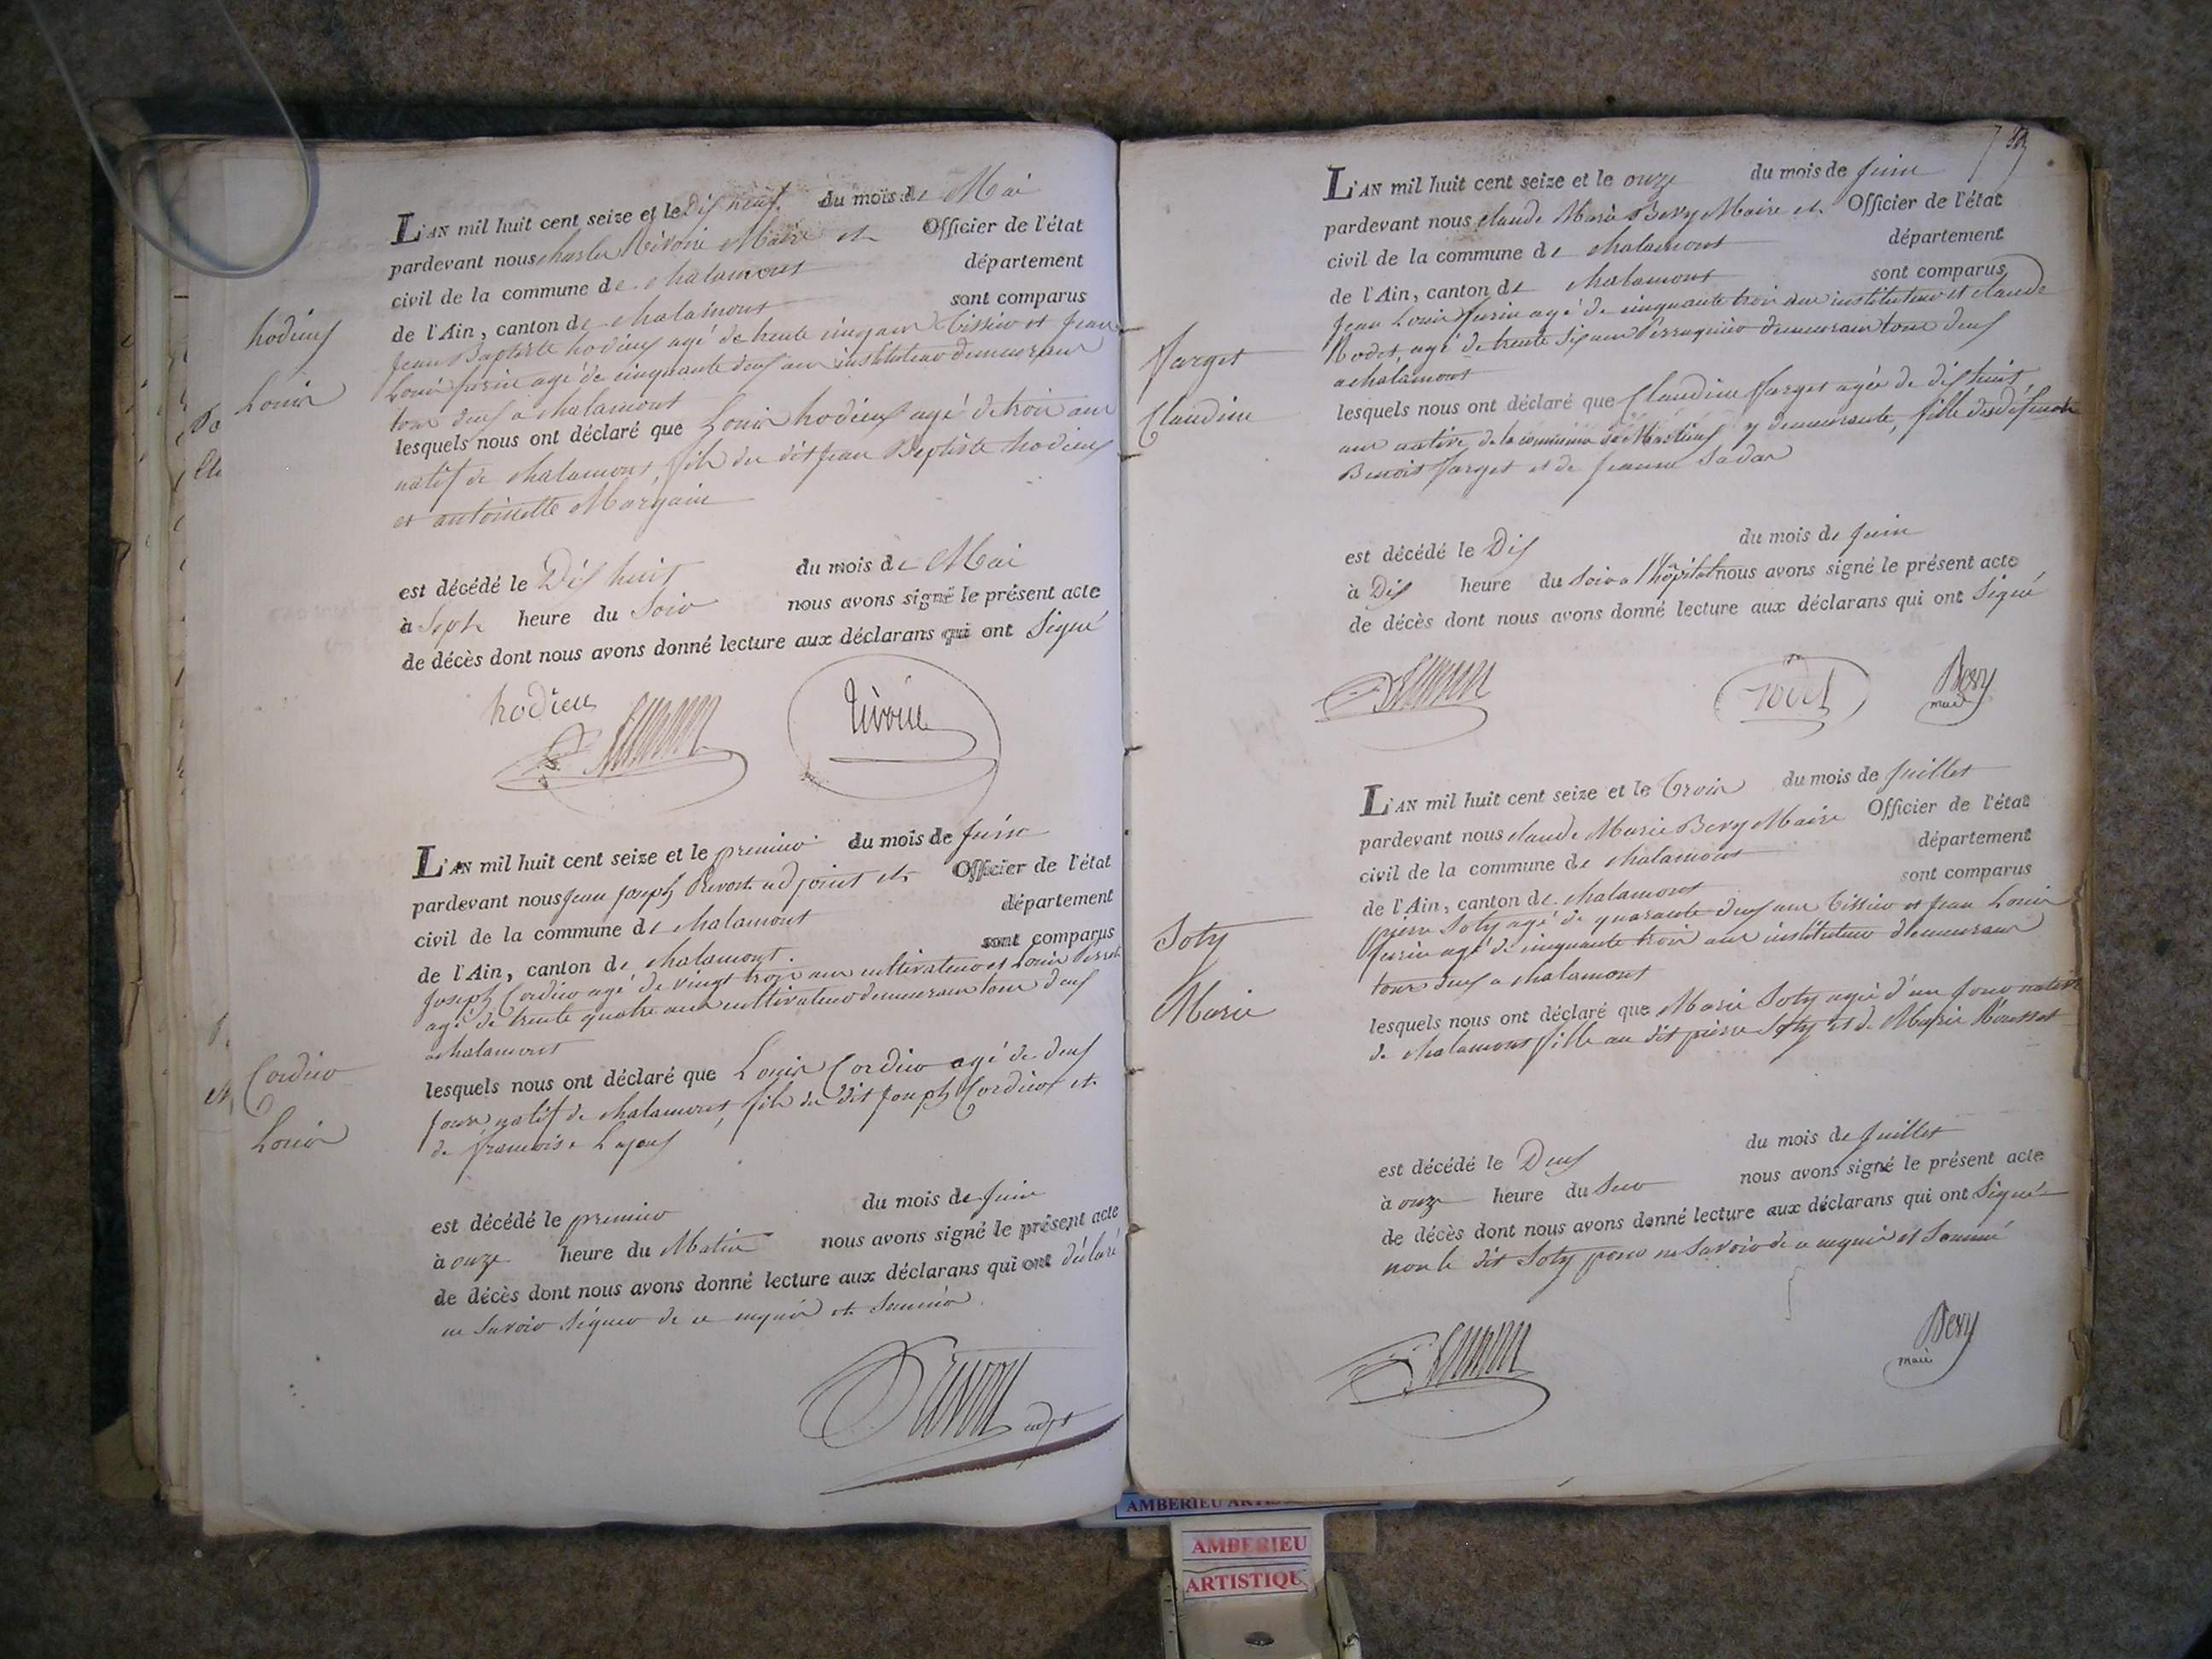 hodieux
Louis
L'AN mil huit cent seize et le Dix neuf du mois de Mai
pardevant nous charles Rivoire Maire et Officier de l'état
civil de la commune de chalamont département
de l'Ain, canton de chalamont sont comparus
Jean Baptiste hodieux agé de trente cinq ans Tissier et Jean
Louis agé de cinquante deux ans instituteur demeurans
tous deux a chalamont
lesquels nous ont déclaré que Louis hodieux agé de trois ans
natif de chalamont fils du dit Jean Baptiste hodieux
et antoinette Margain
est décédé le Dix huit du mois de Mai
à Sept heure du Soir nous avons signé le présent acte
de décès dont nous avons donné lecture aux déclarans qui ont Signé
hodieu
Rivoire
Cordier
Louis
L'AN mil huit cent seize et le premier du mois de Juin
pardevant nous Jean Joseph Prevost adjoint et Officier de l'état
civil de la commune de chalamont département
de l'Ain, canton de chalamont. sont comparus
Joseph Cordier agé de vingt trois ans cultivateur et Louis
agé de trente quatre ans cultivateur demeurans tous deux
a chalamont
lesquels nous ont déclaré que Louis Cordier agé de deux
jours natif de chalamont, fils du dit Joseph Cordier et
de francoise
est décédé le premier du mois de Juin
à onze heure du Matin nous avons signé le présent acte
de décès dont nous avons donné lecture aux déclarans qui ont déclaré
ne Savoir Signer de ce enquis et Sommés
adjt
Farget
Claudine
L'AN mil huit cent seize et le onze du mois de Juin
pardevant nous claude Marie Bevy Maire et Officier de l'état
civil de la commune de chalamont département
de l'Ain, canton de chalamont sont comparus
Jean Louis agé de cinquante trois ans instituteur et claude
Rodet, agé de trente six ans Perruquier demeurans tous deux
a chalamont
lesquels nous ont déclaré que Claudine Farget agée de dix huit
ans native de la commune de y demeurante, fille des défunts
Benoit Farget et de Jeanne
est décédé le Dix du mois de Juin
à Dix heure du Soir a l'hôpital nous avons signé le présent acte
de décès dont nous avons donné lecture aux déclarans qui ont Signé
rodet
Bevy
maire
Soty
Marie
L'AN mil huit cent seize et le Trois du mois de Juillet
pardevant nous claude Marie Bevy Maire Officier de l'état
civil de la commune de chalamont département
de l'Ain, canton de chalamont sont comparus
pierre Soty agé de quarante deux ans Tissier et Jean Louis
agé de cinquante trois ans instituteur demeurans
tous deux a chalamont
lesquels nous ont déclaré que Marie Soty agée d'un jour native
de chalamont fille au dit pierre Soty et de Marie Rousset
est décédé le Deux du mois de Juillet
à onze heure du Soir nous avons signé le présent acte
de décès dont nous avons donné lecture aux déclarans qui ont Signé
non le dit Soty pour ne Savoir de ce enquis et Sommé
Bevy
maire
AMBERIEU
AMBERIEU
ARTISTIQU